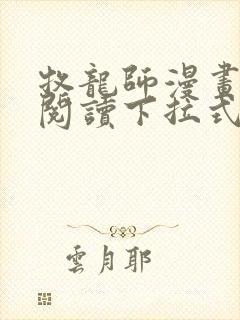 牧龍師漫畫
閱讀下拉式
雲月耶